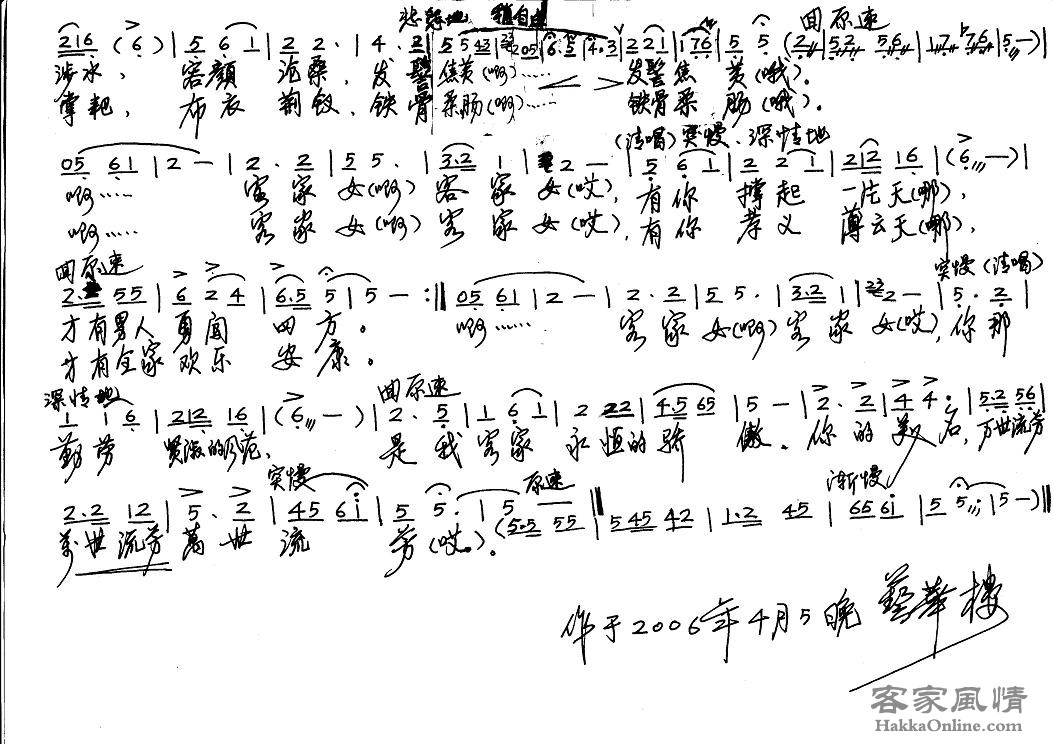 悲 地 稍自由 回原速
216 (6) | 5 6 1 | 2 2. | 4. 2 | 5 5 43 | 2 05 | 6. 5 | 4. 3 | 2 2 1 | 1 76 | 5 5 (2 | 5 2 5 6 | 1 7 76 | 5 —) |
涉水， 容颜 沧桑， 发髻 焦黄(啊)…… 发髻 焦 黄(哦)。
掌耙， 布衣 荆钗， 铁骨 柔肠(啊)…… 铁骨柔 肠(哦)。
(清唱)突慢、深情地
05 61 | 2 — | 2. 2 | 5 5. | 3.2 1 | 2 — | 5 6 1 | 2 2 1 | 212 16 | (6 —) |
啊…… 客家 女(啊) 客家 女(哎)，有你 撑起 一片天(哪)，
啊…… 客家 女(啊) 客家 女(哎)，有你 孝义 薄云天(哪)，
回原速 突慢(清唱)
2. 55 | 6 2 4 | 6.5 5 | 5 — :‖ 05 61 | 2 — | 2. 2 | 5 5. | 3.2 1 | 2 — | 5. 2 |
才有男人 勇闯 四方。 啊…… 客家 女(啊) 客家 女(哎)，你那
才有全家 欢乐 安康。
深情地 回原速
1 1 6 | 212 16 | (6 —) | 2. 5 | 1 6 1 | 2 22 | 4.5 65 | 5 — | 2. 2 | 4 4. | 5.2 56 |
勤劳 贤淑的风范， 是我 客家 永恒的骄 傲。你的 美名，万世流芳
突慢 原速 渐慢
2.2 12 | 5. 2 | 45 6i | 5 5. | 5 (5.5 55 ‖ 545 42 | 1.2 45 | 65 6i | 5 5. | 5 —) ‖
万世流芳 万世 流 芳(哎)。
作于2006年4月5晚 艺华楼
客家風情
HakkaOnline.com